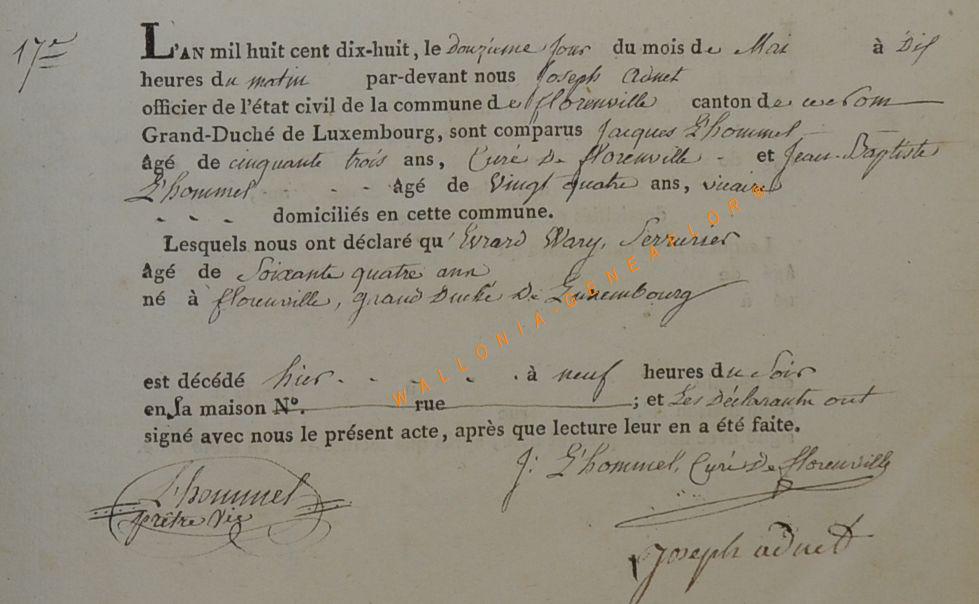 17e
L'AN mil huit cent dix-huit, le douzieme jour du mois de Mai à Dix
heures du matin par-devant nous Joseph adnet
officier de l'état civil de la commune de florenville canton de
Grand-Duché de Luxembourg, sont comparus Jacques L'hommel
âgé de cinquante trois ans, Curé De florenville - et Jean-Baptiste
L'hommel - - - âgé de Vingt quatre ans, vicaire
- - - domiciliés en cette commune.
Lesquels nous ont déclaré qu'Evrard Wary, Serrurier
âgé de Soixante quatre ans
né à florenville, grand Duché De Luxembourg
est décédé hier - - - - à neuf heures du Soir
en sa maison N°. rue ; et Les Déclarants ont
signé avec nous le présent acte, après que lecture leur en a été faite.
J: L'hommel, Curé De florenville
L'hommel
prêtre Vic
Joseph adnet
WALLONIA-GENEALORG